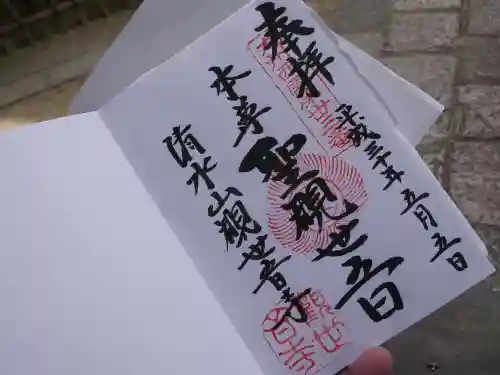 奉拝
平成三十年五月五日
本尊
聖観世音
清水山観世音寺